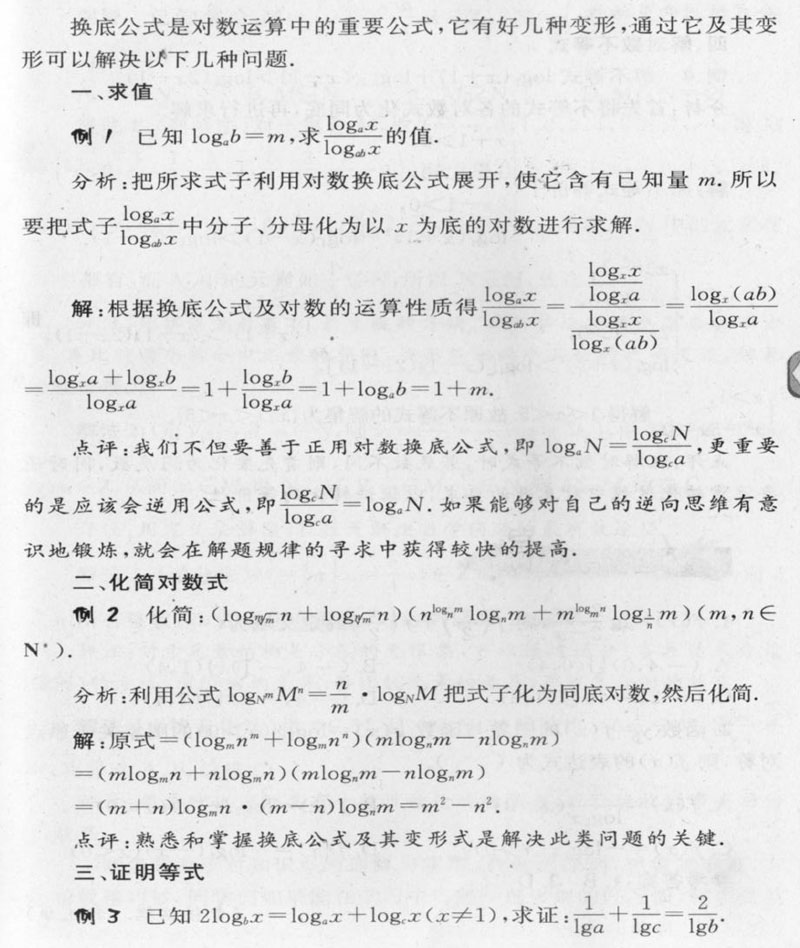 换底公式是对数运算中的重要公式,它有好几种变形,通过它及其变
形可以解决以下几种问题.
一、求值
例1 已知 logₐb=m,求 \frac{\log_a x}{\log_{ab} x} 的值.
分析:把所求式子利用对数换底公式展开,使它含有已知量 m. 所以
要把式子 \frac{\log_a x}{\log_{ab} x} 中分子、分母化为以 x 为底的对数进行求解.
解:根据换底公式及对数的运算性质得 \frac{\log_a x}{\log_{ab} x} = \frac{\frac{\log_x x}{\log_x a}}{\frac{\log_x x}{\log_x (ab)}} = \frac{\log_x (ab)}{\log_x a}
= \frac{\log_x a + \log_x b}{\log_x a} = 1 + \frac{\log_x b}{\log_x a} = 1 + \log_a b = 1 + m.
点评:我们不但要善于正用对数换底公式,即 \log_a N = \frac{\log_c N}{\log_c a},更重要
的是应该会逆用公式,即 \frac{\log_c N}{\log_c a} = \log_a N. 如果能够对自己的逆向思维有意
识地锻炼,就会在解题规律的寻求中获得较快的提高.
二、化简对数式
例2 化简:(\log_{\sqrt[m]{m}} n + \log_{\sqrt[n]{m}} n)(n^{\log_n m} \log_n m + m^{\log_m n} \log_{\frac{1}{n}} m)(m,n∈
N*).
分析:利用公式 \log_{N^m} M^n = \frac{n}{m} · \log_N M 把式子化为同底对数,然后化简.
解:原式 = (\log_m n^m + \log_m n^n)(m\log_n m - n\log_n m)
= (m\log_m n + n\log_m n)(m\log_n m - n\log_n m)
= (m+n)\log_m n · (m-n)\log_n m = m² - n².
点评:熟悉和掌握换底公式及其变形式是解决此类问题的关键.
三、证明等式
例3 已知 2\log_b x = \log_a x + \log_c x (x≠1),求证: \frac{1}{\lg a} + \frac{1}{\lg c} = \frac{2}{\lg b}.